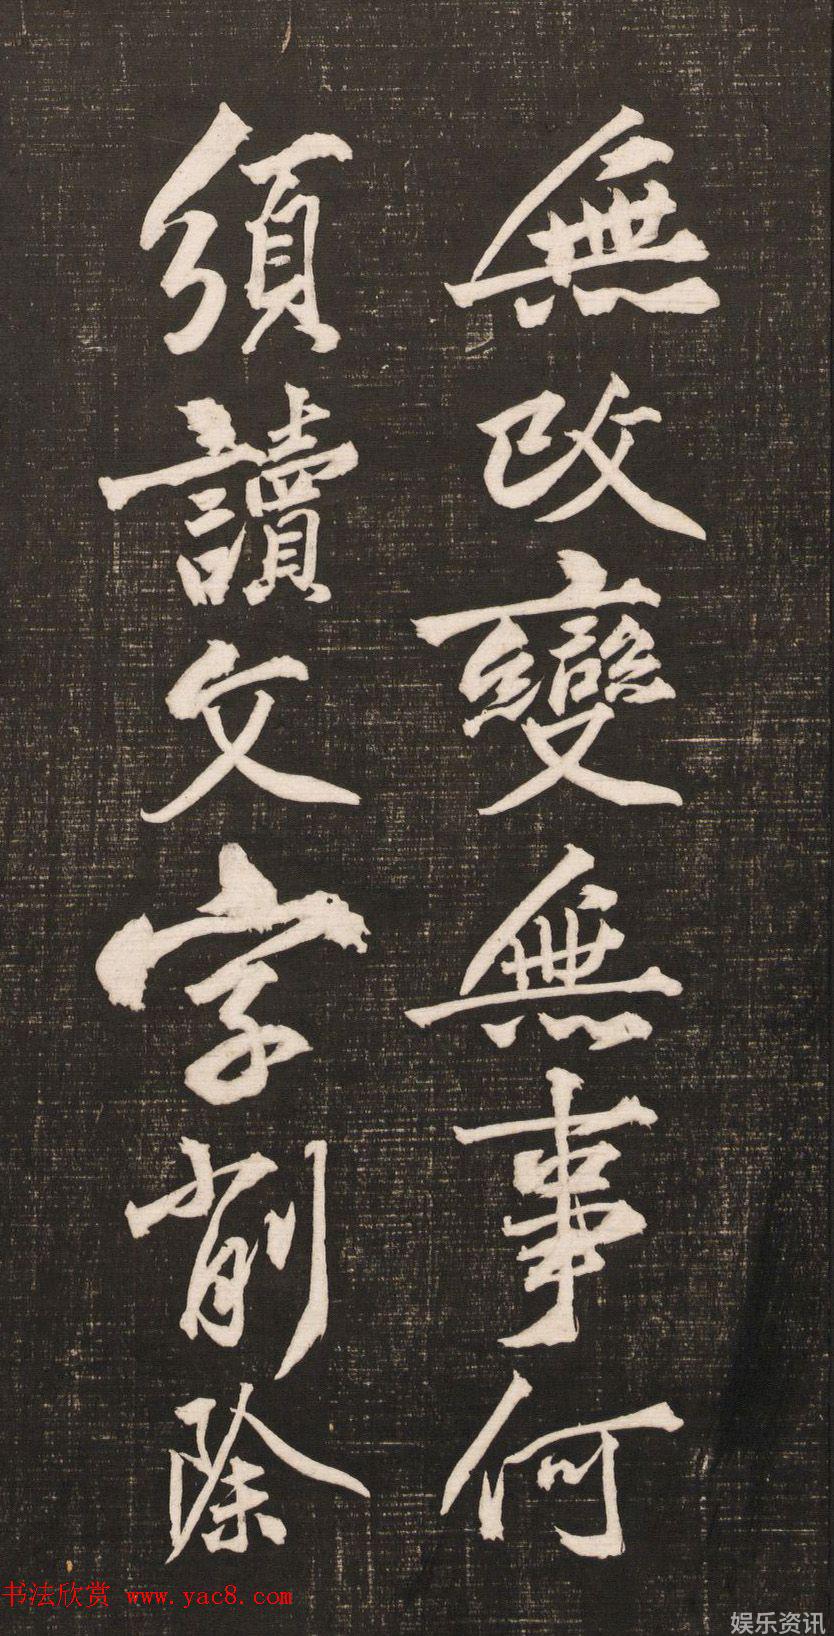 無改變無事何
須讀文字削除
书法欣赏 www.yac8.com
娱乐资讯